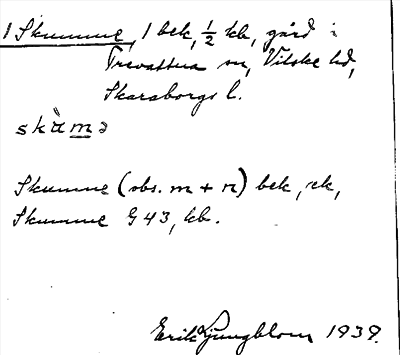 1 Skumme, 1 bek, ½ kb, gård i
Trevattna sn, Vilske hd,
Skaraborgs l.
skùmə
Skumme (obs. m + n) bek, ek,
Skumme G 43, kb.
Erik Ljungblom 1939.